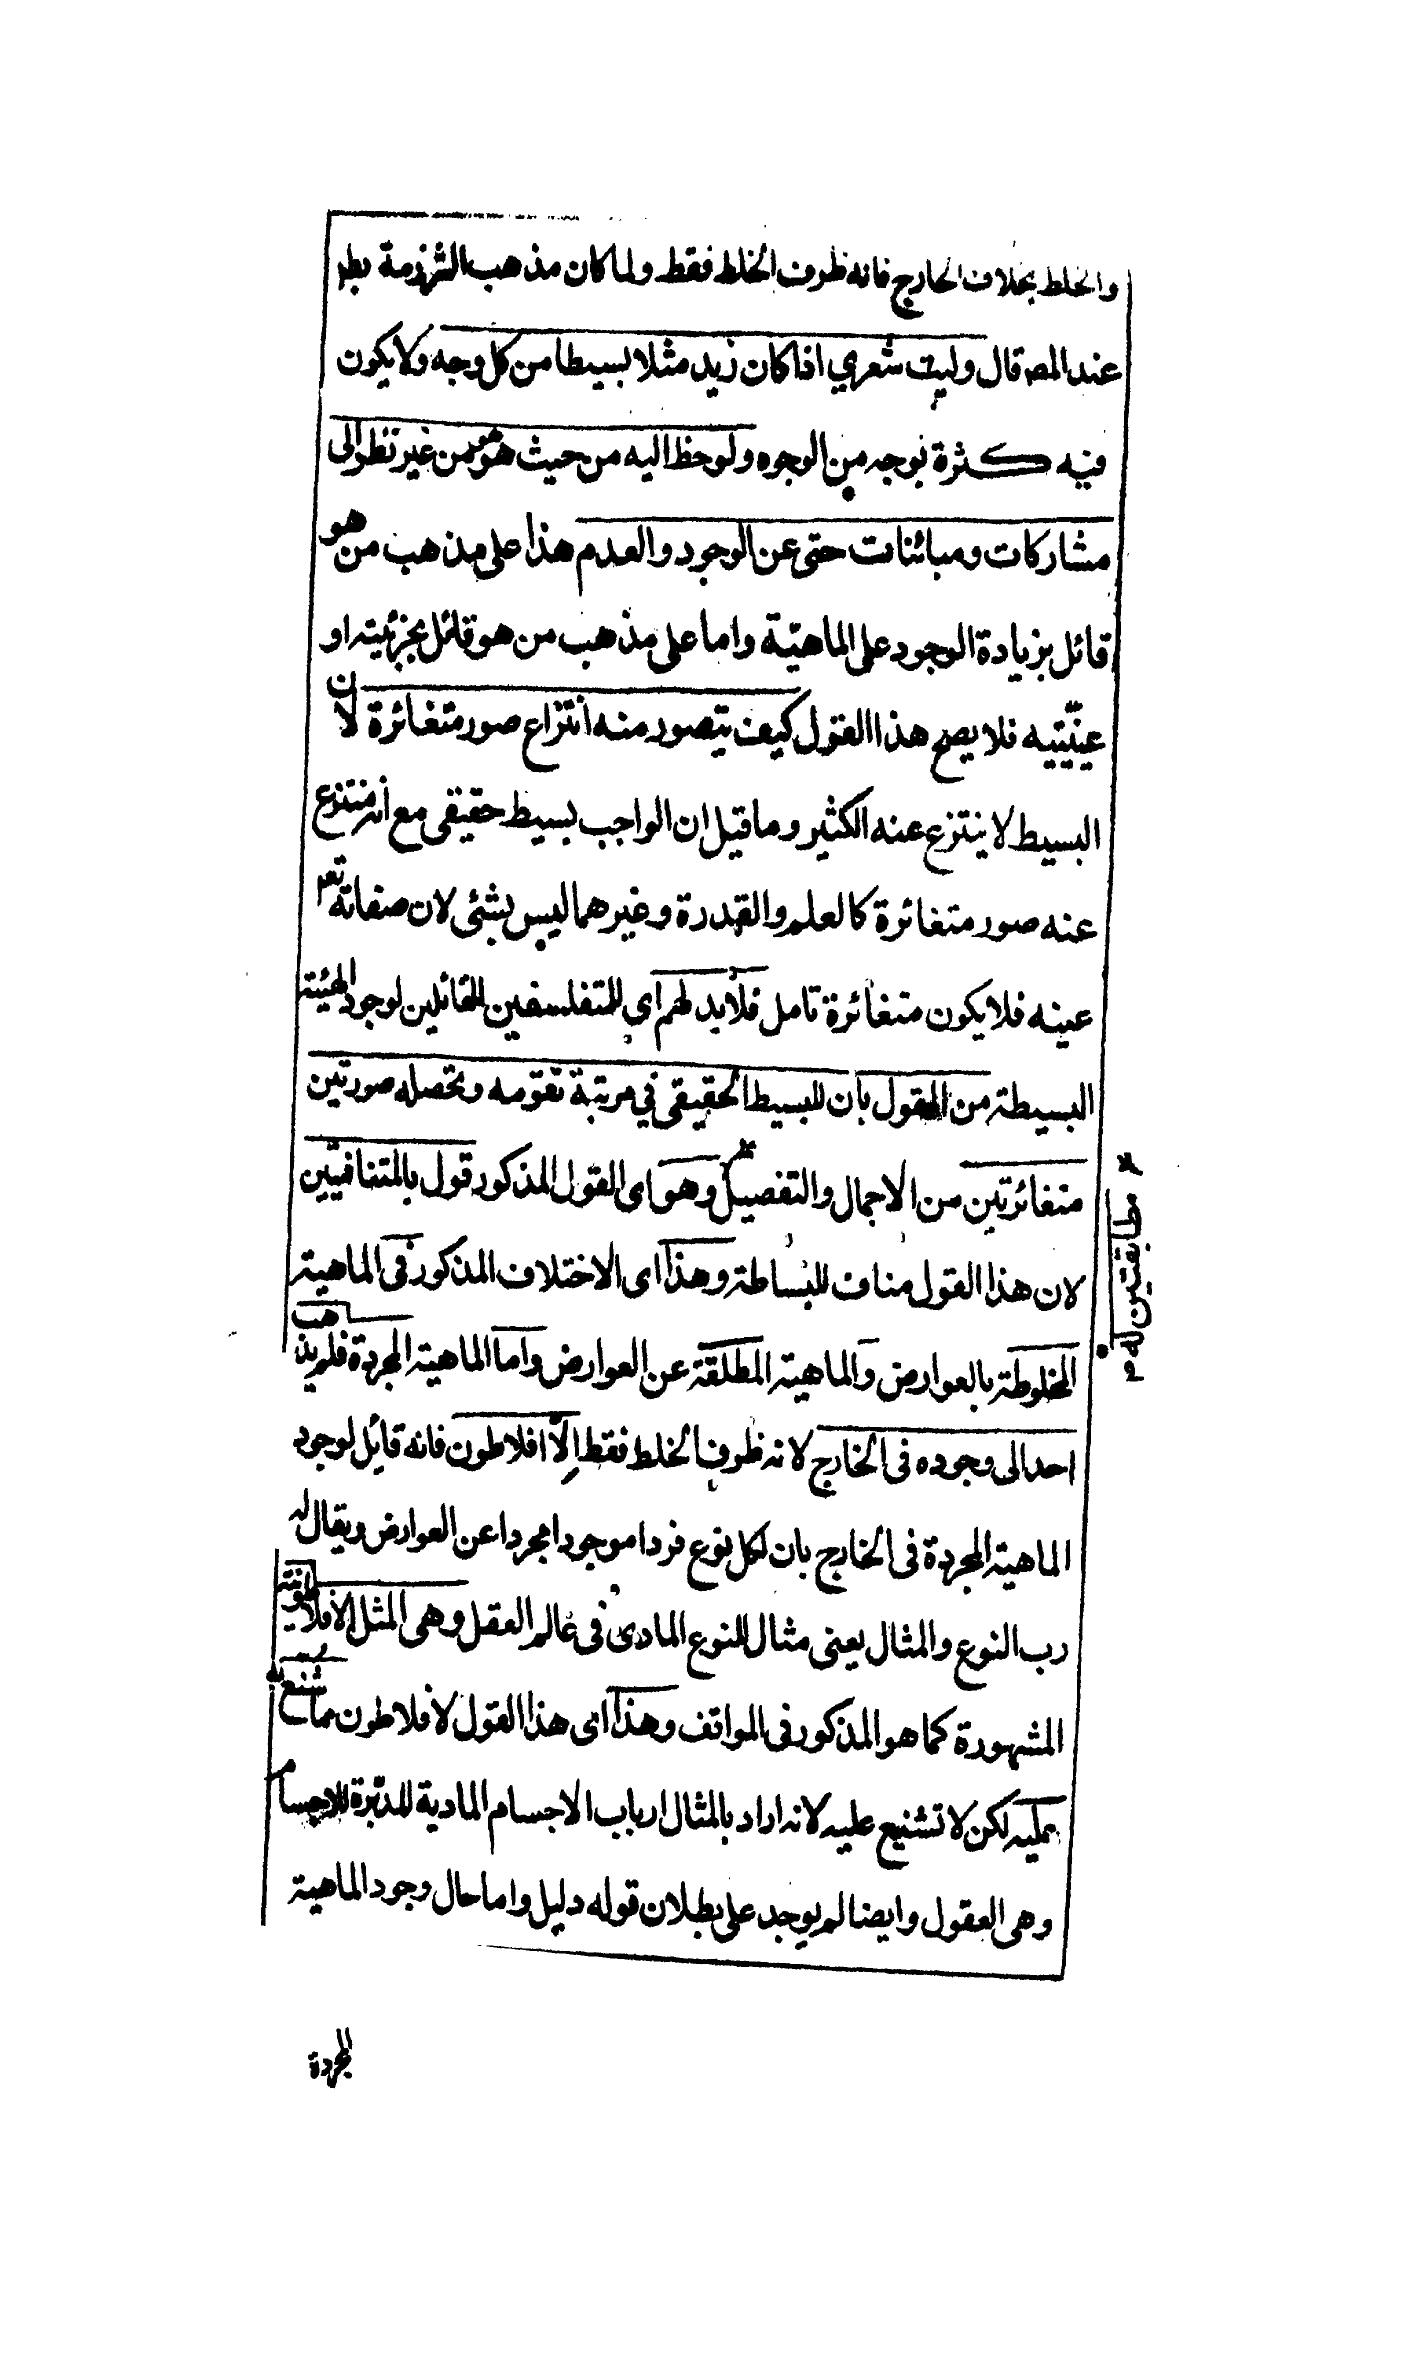 والخلط بخلاف الخارج فانه ظرف الخلط فقط ولما كان مذهب الشرذمة بطر
عند المصـ قال وليت شعري اذا كان زيد مثلا بسيطا من كل وجه ولا يكون
فيه كثرة بوجه من الوجوه ولوحظ اليه من حيث هو هو من غير نظر الى
مشاركات ومبائنات حتى عن الوجود والعدم هذا على مذهب من هو
قائل بزيادة الوجود على الماهيّة واما على مذهب من هو قائل بجزئيته او
عينيّتيه فلا يصح هذا القول كيف يتصور منه انتزاع صور متغائرة لان
البسيط لا ينتزع عنه الكثير وما قيل ان الواجب بسيط حقيقي مع أنه منتزع
عنه صور متغائرة كالعلم والقدرة وغيرهما ليس بشئى لان صفاته تعـ
عينه فلا يكون متغائرة تامل فلابد لهم اي للمتفلسفين القائلين لوجود الهيئة
البسيطة من القول بان للبسيط الحقيقي في مرتبة تقوّمه وتحصله صورتين
متغائرتين من الاجمال والتفصيل وهو اى القول المذكور قول بالمتنافيين
مطابقتين له م
لان هذا القول مناف للبساطة وهذا اى الاختلاف المذكور في الماهية
المخلوطة بالعوارض والماهية المطلقة عن العوارض واما الماهية المجردة فلم يذهب
احد الى وجوده فى الخارج لانه ظرف الخلط فقط الّا افلاطون فانه قائل لوجود
الماهية المجردة فى الخارج بان لكل نوع فردا موجودا مجردا عن العوارض ويقال له
رب النوع والمثال يعنى مثال للنوع المادى فى عالم العقل وهى المثل الأفلاطونية
المشهورة كما هو المذكور فى المواقف وهذا اى هذا القول لافلاطون مما شنع به
عليه لكن لا تشنيع عليه لانه اراد بالمثال ارباب الاجسام المادية المدبّرة للاجسام
وهى العقول وايضا لم يوجد على بطلان قوله دليل واما حال وجود الماهية
المجردة